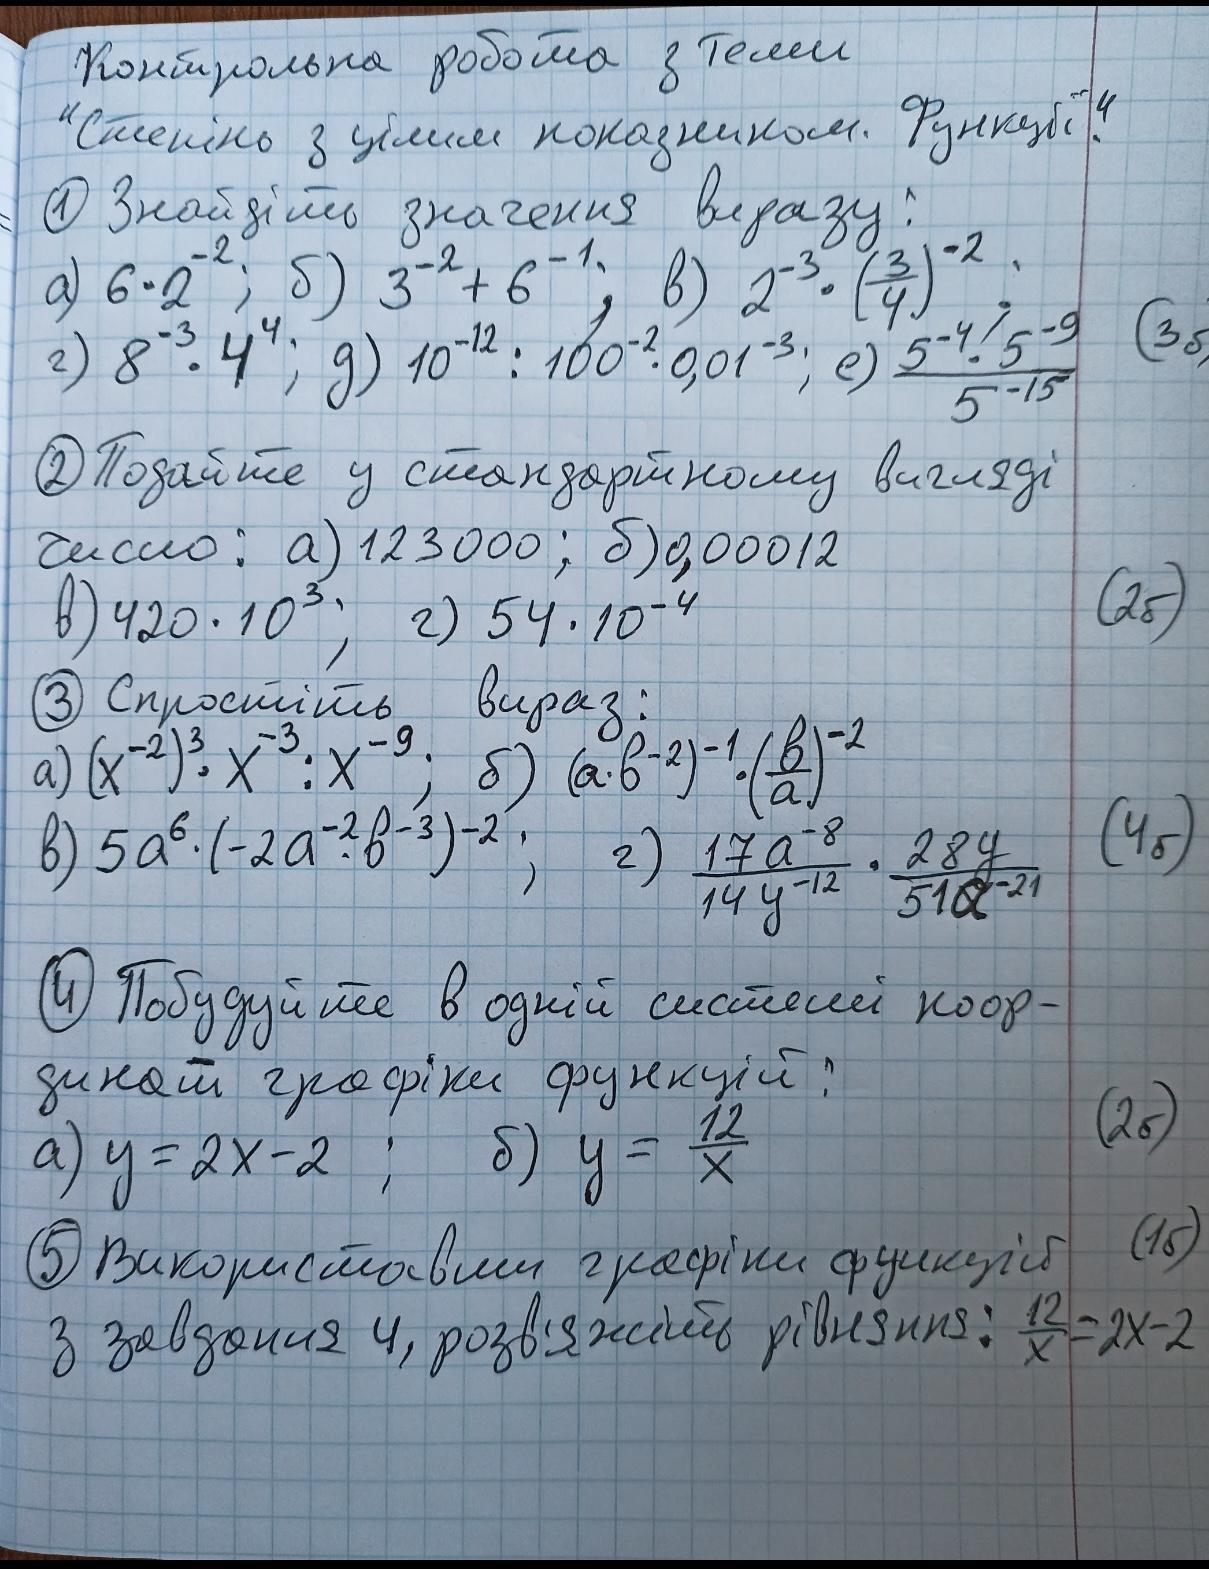 Контрольна робота з теми
"Степінь з цілим показником. Функції".
① Знайдіть значення виразу:
а) 6·2⁻²; б) 3⁻² + 6⁻¹; в) 2⁻³·(3/4)⁻²;
г) 8⁻³·4⁴; д) 10⁻¹² : 100⁻²·0,01⁻³; е) (5⁻⁴·5⁻⁹)/5⁻¹⁵ (3б)
② Подайте у стандартному вигляді
число: а) 123000; б) 0,00012
в) 420·10³; г) 54·10⁻⁴ (2б)
③ Спростіть вираз:
а) (x⁻²)³·x⁻³ : x⁻⁹; б) (a·b⁻²)⁻¹·(b/a)⁻²
в) 5a⁶·(-2a⁻²·b⁻³)⁻²; г) 17a⁻⁸/14y⁻¹² · 28y/51a⁻²¹ (4б)
④ Побудуйте в одній системі коор-
динат графіки функцій:
а) y = 2x - 2; б) y = 12/x (2б)
⑤ Використавши графіки функцій (1б)
з завдання 4, розв'яжіть рівняння: 12/x = 2x-2